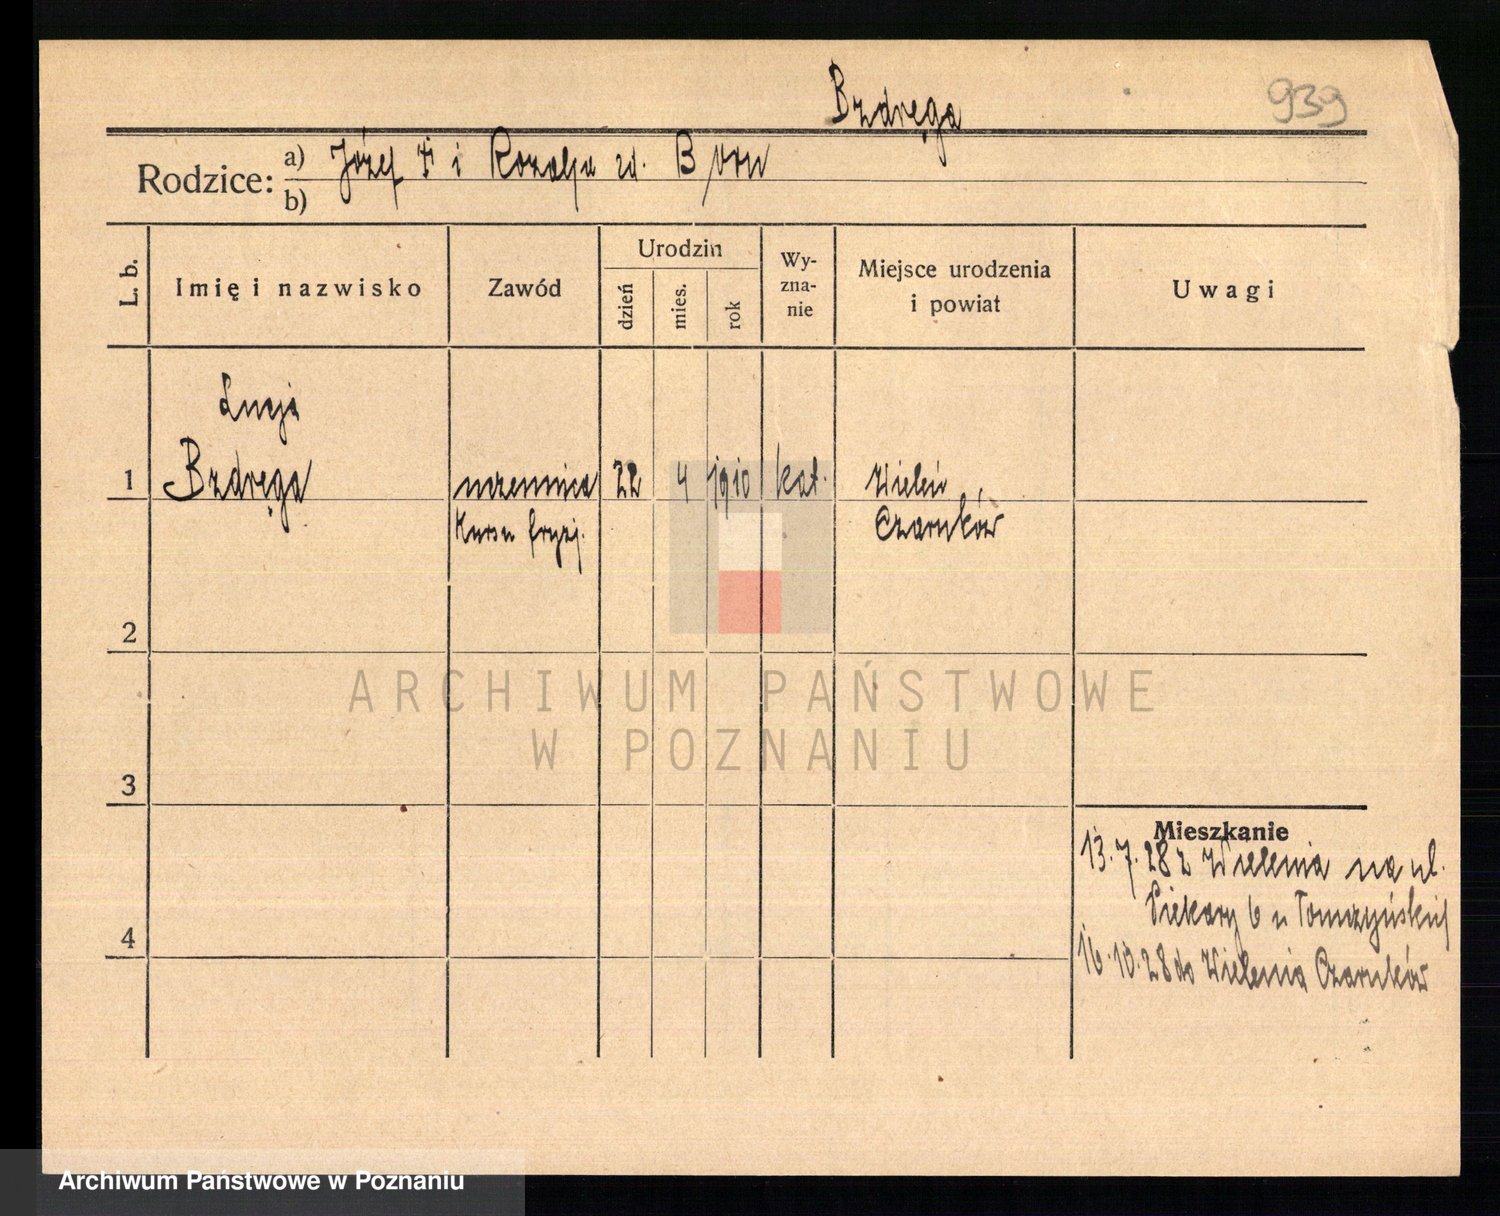 Bzdręga
939
Rodzice: a) Józef † i Rozalja zd. Born
b)
L. b.
Imię i nazwisko
Zawód
Urodzin
dzień
mies.
rok
Wy-
zna-
nie
Miejsce urodzenia
i powiat
Uwagi
Lucja
1 Bzdręga uczennica 22 4 1910 kat. Wieleń
Kursu fryzj. Czarnków
2
3
4
Mieszkanie
13.7.28 z Wielenia na ul.
Piekary 6 u Tomczyńskiej
16.10.28 do Wielenia Czarnków
ARCHIWUM PAŃSTWOWE
W POZNANIU
Archiwum Państwowe w Poznaniu